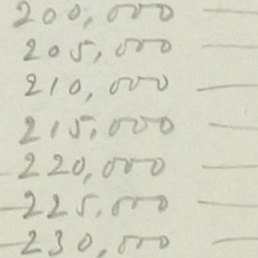 200,000 —
205,000 —
210,000 —
215,000 —
220,000 —
225,000 —
230,000 —